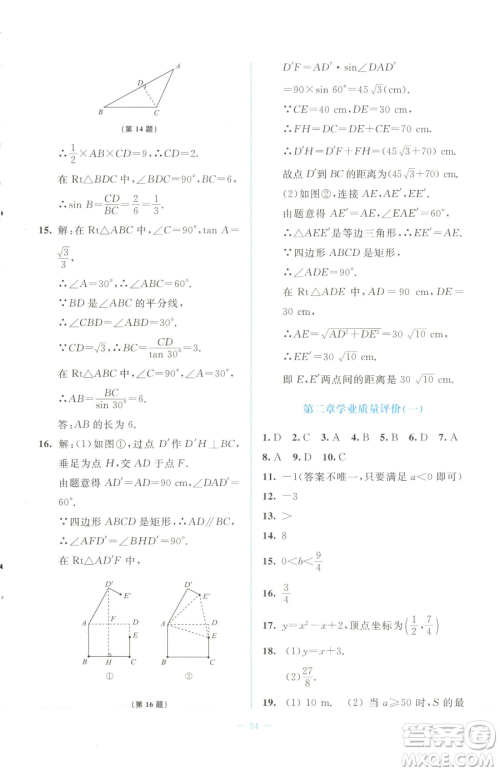 A
D
B
C
(第 14 题)
∴1/2×AB×CD=9,∴CD=3.
在 Rt△BDC 中,∵BC=6
∴sin B=CD/BC=2/6=1/3.
15. 解:在 Rt△ABC 中,∵tan A=
√3/3,
∴∠A=30°,∴∠ABC=60°.
∵BD 是∠ABC 的平分线,
∴∠CBD=∠ABD=30°.
∵CD=√3,∴BC=CD/tan 30°=3.
∴AB=BC/sin 30°=6.
答:AB 的长为 6.
16. 解:(1)如图①,过点 D′作 D′H⊥BC,
垂足为点 H,交 AD 于点 F.
由题意得 AD′=AD=90 cm,∠DAD′=
60°.
∵四边形 ABCD 是矩形,∴AD∥BC.
∴∠AFD′=∠BHD′=90°.
在 Rt△AD′F 中,
D′
E′
A
F
D
E
B
H
C
①
D′
E′
A
D
E
B
C
②
(第 16 题)
D′F=AD′·sin∠DAD′
=90×sin 60°=(45√3)cm.
∵CE=40 cm,DE=30 cm,
∴CD=DE+CE=70 cm.
∴D′H=D′F+FH=(45√3+70) cm.
故点 D′到 BC 的距离为(45√3+70) cm.
(2)如图②,连接 AE,AE′,EE′.
由题意得 AE′=AE,∠EAE′=60°.
∴△AEE′是等边三角形,∴EE′=AE.
∵四边形 ABCD 是矩形,
∴∠ADE=90°.
在 Rt△ADE 中,AD=90 cm,DE=
30 cm,
∴AE=√AD²+DE²=30√10 cm.
∴EE′=AE=30√10 cm.
即 E,E′两点间的距离是 30√10 cm.
第二章学业质量评价(一)
1. D 2. C 3. A 4. B 5. D 6. B 7. A
8. A 9. D 10. C
11. −1(答案不唯一,只要满足 a<0 即可)
12. −3
13. >
14. 8
15. 0<b<9/4
16. 3/4
17. y=x²−x+2,顶点坐标为(1/2,7/4)
18. (1)(1,0)
(2)27/8
19. (1)10 m. (2)当 a≥50 时,S 的最
— 54 —